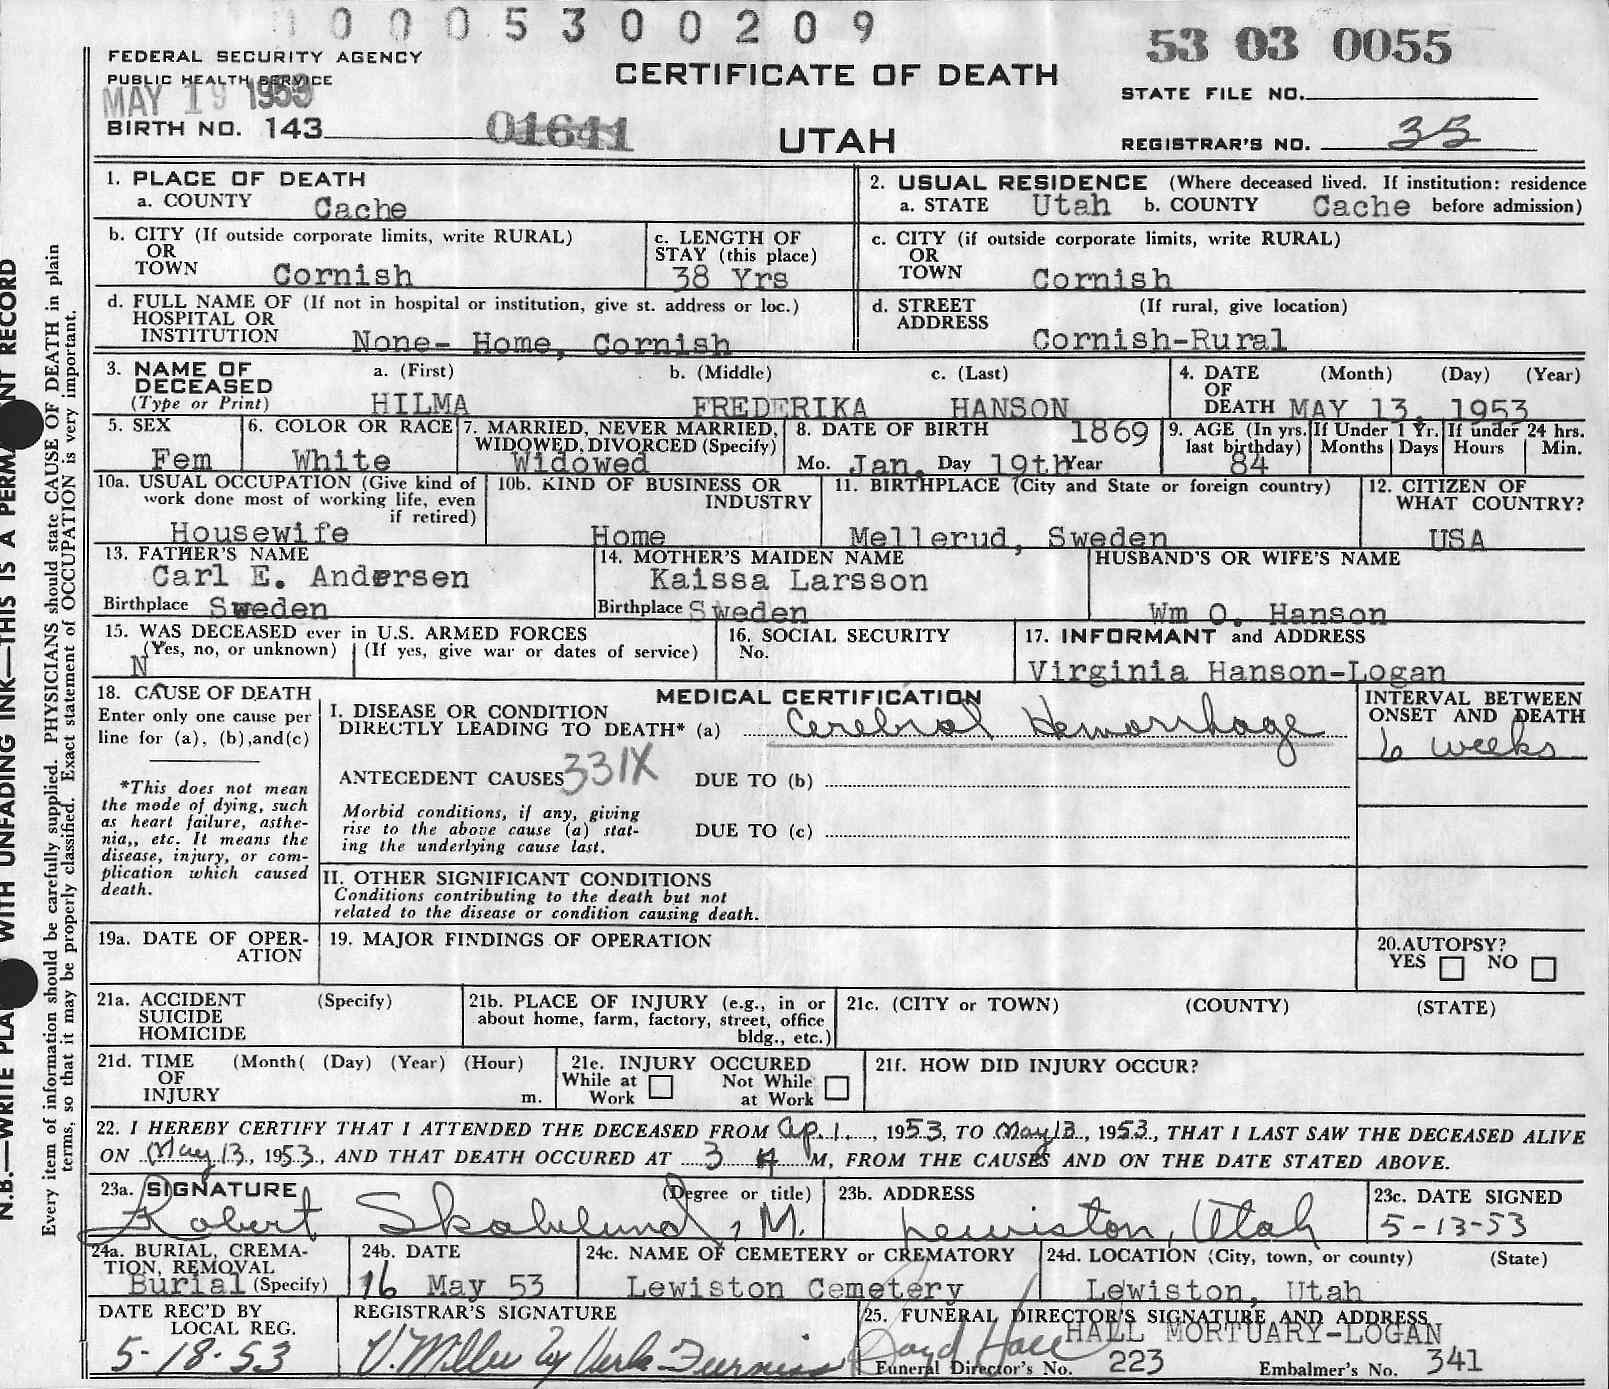 0005300209
53 03 0055
FEDERAL SECURITY AGENCY
PUBLIC HEALTH SERVICE
MAY 19 1953
CERTIFICATE OF DEATH
STATE FILE NO.
BIRTH NO. 143
01641
UTAH
REGISTRAR'S NO. 35
1. PLACE OF DEATH
a. COUNTY Cache
2. USUAL RESIDENCE (Where deceased lived. If institution: residence before admission)
a. STATE Utah b. COUNTY Cache
b. CITY (If outside corporate limits, write RURAL)
OR
TOWN Cornish
c. LENGTH OF
STAY (this place)
38 Yrs
c. CITY (if outside corporate limits, write RURAL)
OR
TOWN Cornish
d. FULL NAME OF (If not in hospital or institution, give st. address or loc.)
HOSPITAL OR
INSTITUTION None- Home, Cornish
d. STREET (If rural, give location)
ADDRESS Cornish-Rural
3. NAME OF
DECEASED
(Type or Print)
a. (First) b. (Middle) c. (Last)
HILMA FREDERIKA HANSON
4. DATE (Month) (Day) (Year)
OF
DEATH MAY 13, 1953
5. SEX
Fem
6. COLOR OR RACE
White
7. MARRIED, NEVER MARRIED,
WIDOWED, DIVORCED (Specify)
Widowed
8. DATE OF BIRTH 1869
Mo. Jan. Day 19th Year
9. AGE (In yrs. last birthday)
84
If Under 1 Yr.
Months Days
If under 24 hrs.
Hours Min.
10a. USUAL OCCUPATION (Give kind of
work done most of working life, even
if retired)
Housewife
10b. KIND OF BUSINESS OR
INDUSTRY
Home
11. BIRTHPLACE (City and State or foreign country)
Mellerud, Sweden
12. CITIZEN OF
WHAT COUNTRY?
USA
13. FATHER'S NAME
Carl E. Andersen
Birthplace Sweden
14. MOTHER'S MAIDEN NAME
Kaissa Larsson
Birthplace Sweden
HUSBAND'S OR WIFE'S NAME
Wm O. Hanson
15. WAS DECEASED ever in U.S. ARMED FORCES
(Yes, no, or unknown) (If yes, give war or dates of service)
N
16. SOCIAL SECURITY
No.
17. INFORMANT and ADDRESS
Virginia Hanson-Logan
18. CAUSE OF DEATH
Enter only one cause per
line for (a), (b),and(c)
*This does not mean
the mode of dying, such
as heart failure, asthe-
nia,, etc. It means the
disease, injury, or com-
plication which caused
death.
MEDICAL CERTIFICATION
I. DISEASE OR CONDITION
DIRECTLY LEADING TO DEATH* (a) Cerebral Hemorrhage
INTERVAL BETWEEN
ONSET AND DEATH
6 weeks
ANTECEDENT CAUSES 331X DUE TO (b)
Morbid conditions, if any, giving
rise to the above cause (a) stat-
ing the underlying cause last.
DUE TO (c)
II. OTHER SIGNIFICANT CONDITIONS
Conditions contributing to the death but not
related to the disease or condition causing death.
19a. DATE OF OPER-
ATION
19. MAJOR FINDINGS OF OPERATION
20. AUTOPSY?
YES NO
21a. ACCIDENT (Specify)
SUICIDE
HOMICIDE
21b. PLACE OF INJURY (e.g., in or
about home, farm, factory, street, office
bldg., etc.)
21c. (CITY or TOWN) (COUNTY) (STATE)
21d. TIME (Month( (Day) (Year) (Hour)
OF
INJURY m.
21e. INJURY OCCURED
While at Work Not While at Work
21f. HOW DID INJURY OCCUR?
22. I HEREBY CERTIFY THAT I ATTENDED THE DECEASED FROM Ap. 1, 1953, TO May 13, 1953, THAT I LAST SAW THE DECEASED ALIVE
ON May 13, 1953, AND THAT DEATH OCCURED AT 3 A M, FROM THE CAUSES AND ON THE DATE STATED ABOVE.
23a. SIGNATURE (Degree or title)
Robert Skabelund, M.
23b. ADDRESS
Lewiston, Utah
23c. DATE SIGNED
5-13-53
24a. BURIAL, CREMA-
TION, REMOVAL
Burial (Specify)
24b. DATE
16 May 53
24c. NAME OF CEMETERY or CREMATORY
Lewiston Cemetery
24d. LOCATION (City, town, or county) (State)
Lewiston, Utah
DATE REC'D BY
LOCAL REG.
5-18-53
REGISTRAR'S SIGNATURE
V. Miller by Verla Furniss
25. FUNERAL DIRECTOR'S SIGNATURE AND ADDRESS
HALL MORTUARY-LOGAN
Loyd Hall
Funeral Director's No. 223 Embalmer's No. 341
Every item of information should be carefully supplied. PHYSICIANS should state CAUSE OF DEATH in plain
terms, so that it may be properly classified. Exact statement of OCCUPATION is very important.